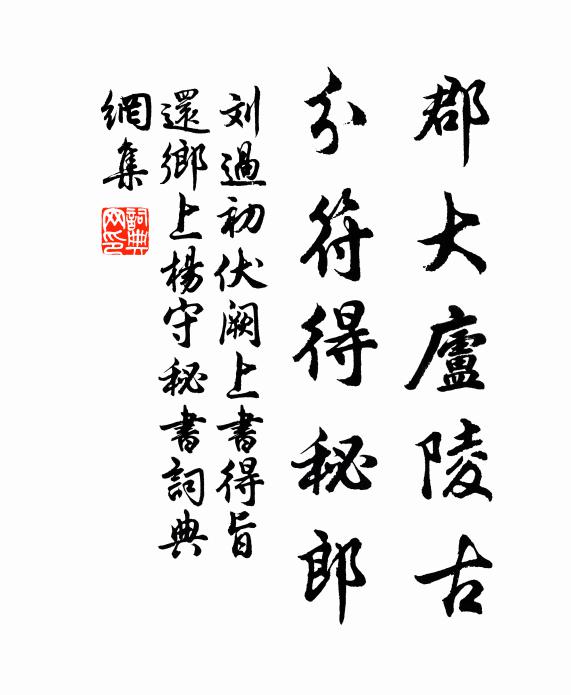 郡大廬陵古
分符得秘郎
刘過初伏闕上書得旨
還鄉上楊守秘書詞典
網集
詞典网印